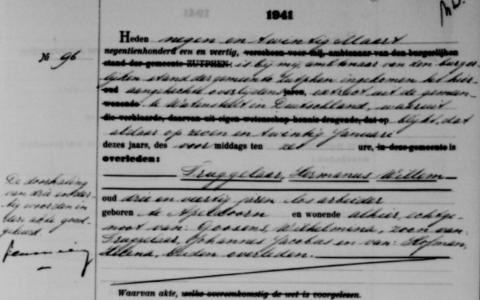 1941
№ 96
Heden negen en twintig Maart
negentienhonderd een en veertig, verscheen voor mij, ambtenaar van den burgerlijken
stand der gemeente ZUTPHEN, is bij mij, ambtenaar van den burger-
lijken stand der gemeente Zutphen ingekomen het hier-
oud aangehechte overlijdens jaren, extract uit de gemeen-
wonende te Watenstedt in Deutschland, waaruit
die verklaarde, daarvan uit eigen wetenschap kennis dragende, dat op blijkt, dat
aldaar op zeven en twintig Januari
dezes jaars, des voor middags ten zes ure, in deze gemeente is
overleden:
Truggelaar, Hermanus Willem
oud drie en veertig jaren los arbeider
geboren te Apeldoorn en wonende alhier, echtge-
noot van: Goossens Wilhelmina, zoon van:
Truggelaar, Johannes Jacobus en van: Hofman
beiden overleden.
De doorhaling
van drie
woorden in
deze akte goed-
gekeurd.
Waarvan akte, welke overeenkomstig de wet is voorgelezen.